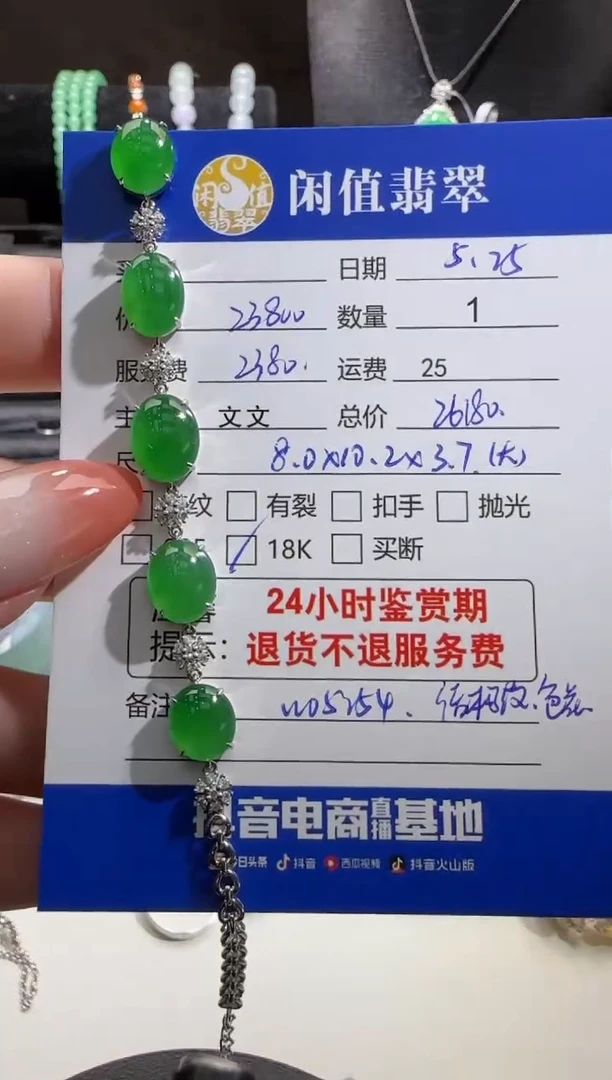 闲值翡翠
闲值翡翠
日期 5.25
23800 数量 1
服 费 2380. 运费 25
主 文文 总价 26180.
尺 8.0x10.2x3.7.(大)
纹 有裂 扣手 抛光
18K 买断
24小时鉴赏期
提示：退货不退服务费
备注 色差
抖音电商直播基地
日头条 抖音 西瓜视频 抖音火山版